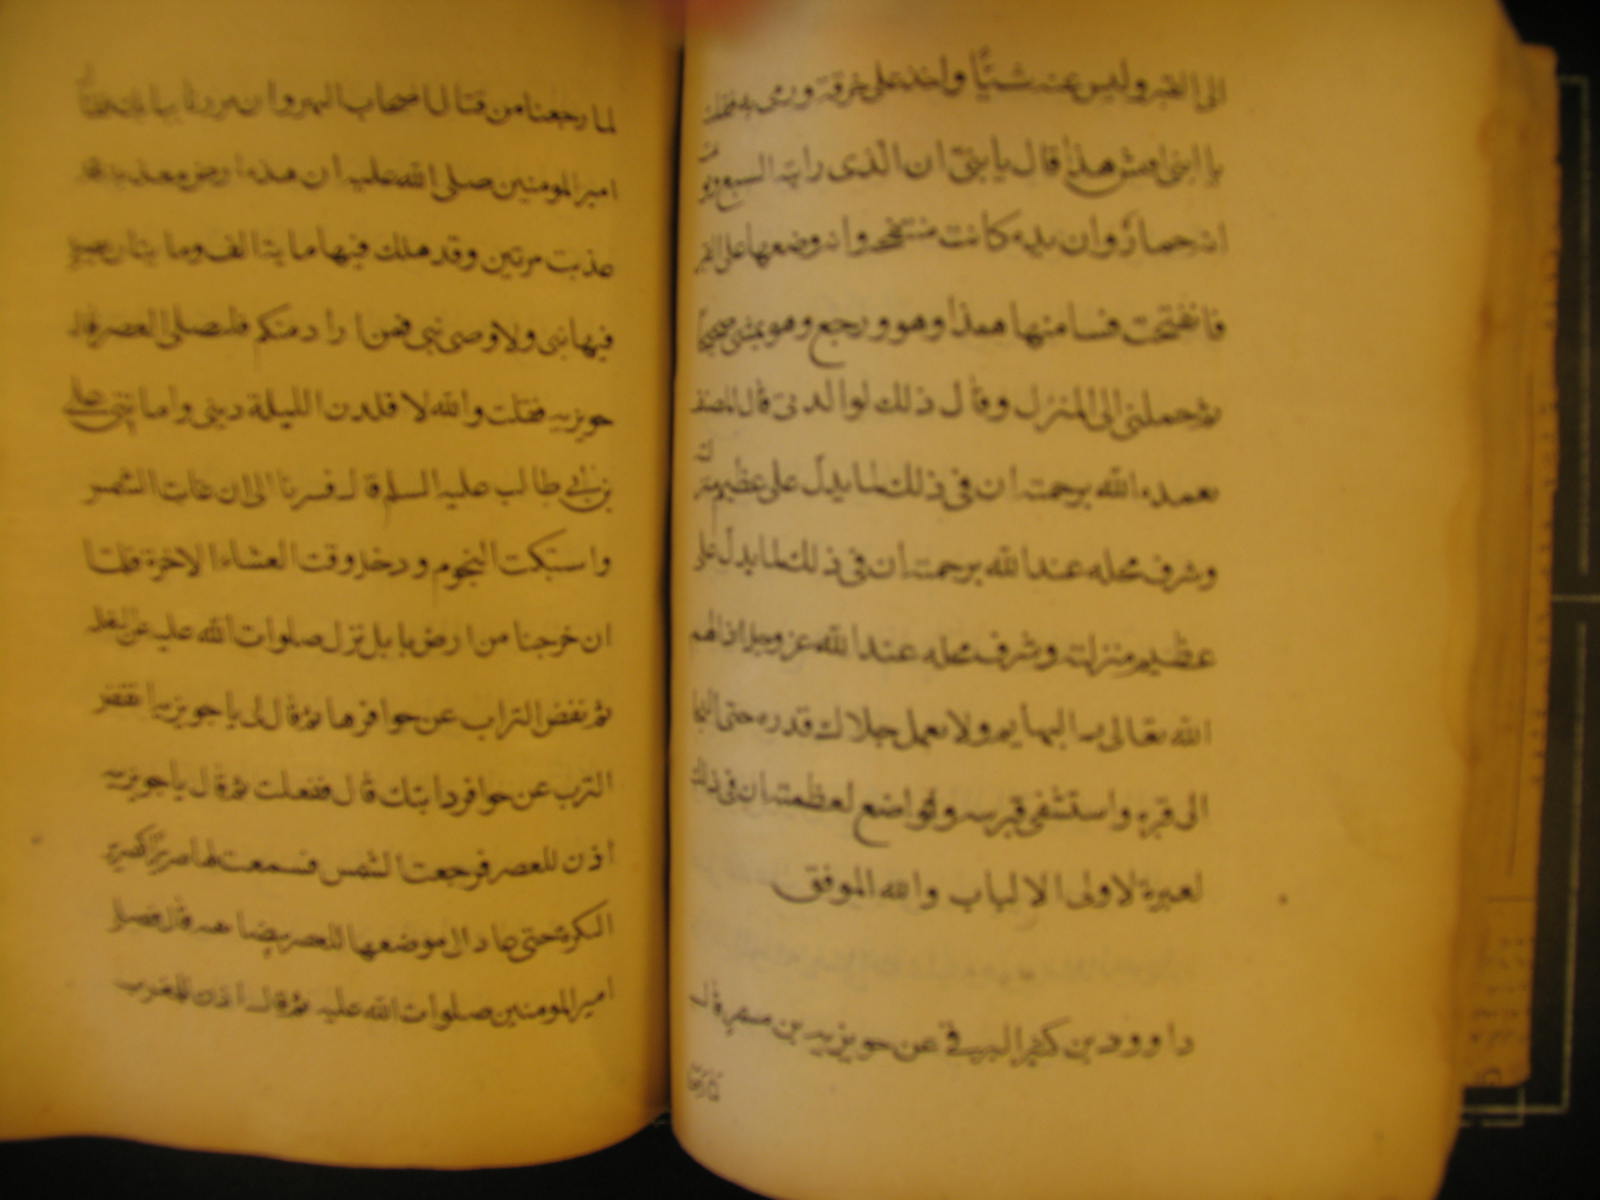 الى القبر وليس عنه شيئا ولفذ على خرقة ورمى به فقلت
يا ابني امش هذا قال يا بنى ان الذى رايته السبع
انه حصار وان يده كانت منتفخه وانه وضعها على القبر
فانفتحت فسا منها همذا وهو ورجع وهو يمشى صحيحا
ثم حملنى الى المنزل وقال ذلك لوالدتى قال المصنف
تغمده الله برحمته ان فى ذلك لما يدل على عظيم
وشرف محله عند الله برحمته ان فى ذلك لما يدل على
عظيم منزلته وشرف محله عند الله عز وجل اذ الهم
الله تعالى به البهايم ولا نعمل جلالت قدره حتى اتيا
الى قبره واستشفى قبربه وتواضع لعظمته ان فى ذلك
لعبرة لاولى الالباب والله الموفق
داوود بن كثير البرقى عن جويزيه بن مسهر قال
لما رجعنا
لما رجعنا من قتال اصحاب النهروان مررنا ببابل فقال
امير المومنين صلى الله عليه ان هذه ارض معذبة
عذبت مرتين وقد هلك فيها ماية الف وما يتان
فيها نبى ولا وصى نبى فمن اراد منكم فليصلى العصر قال
جويزيه فقلت والله لا قلدن الليلة دينى وامانتى على
بن ابى طالب عليه السلم قال فسرنا الى ان غابت الشمس
واستبكت النجوم ودخل وقت العشاء الاخرة فلما
ان خرجنا من ارض بابل نزل صلوات الله عليه عن البغلة
ثم نفض التراب عن حوافرها ثم قال لى يا جويزيه انفض
الترب عن حوافر دابتك قال ففعلت ثم قال يا جويزيه
اذن للعصر فرجعت الشمس فسمعت لها صريرا كصرير
البكرة حتى عاد الى موضعها للعصر بيضا قال فصلى
امير المومنين صلوات الله عليه ثم قال اذن للمغرب